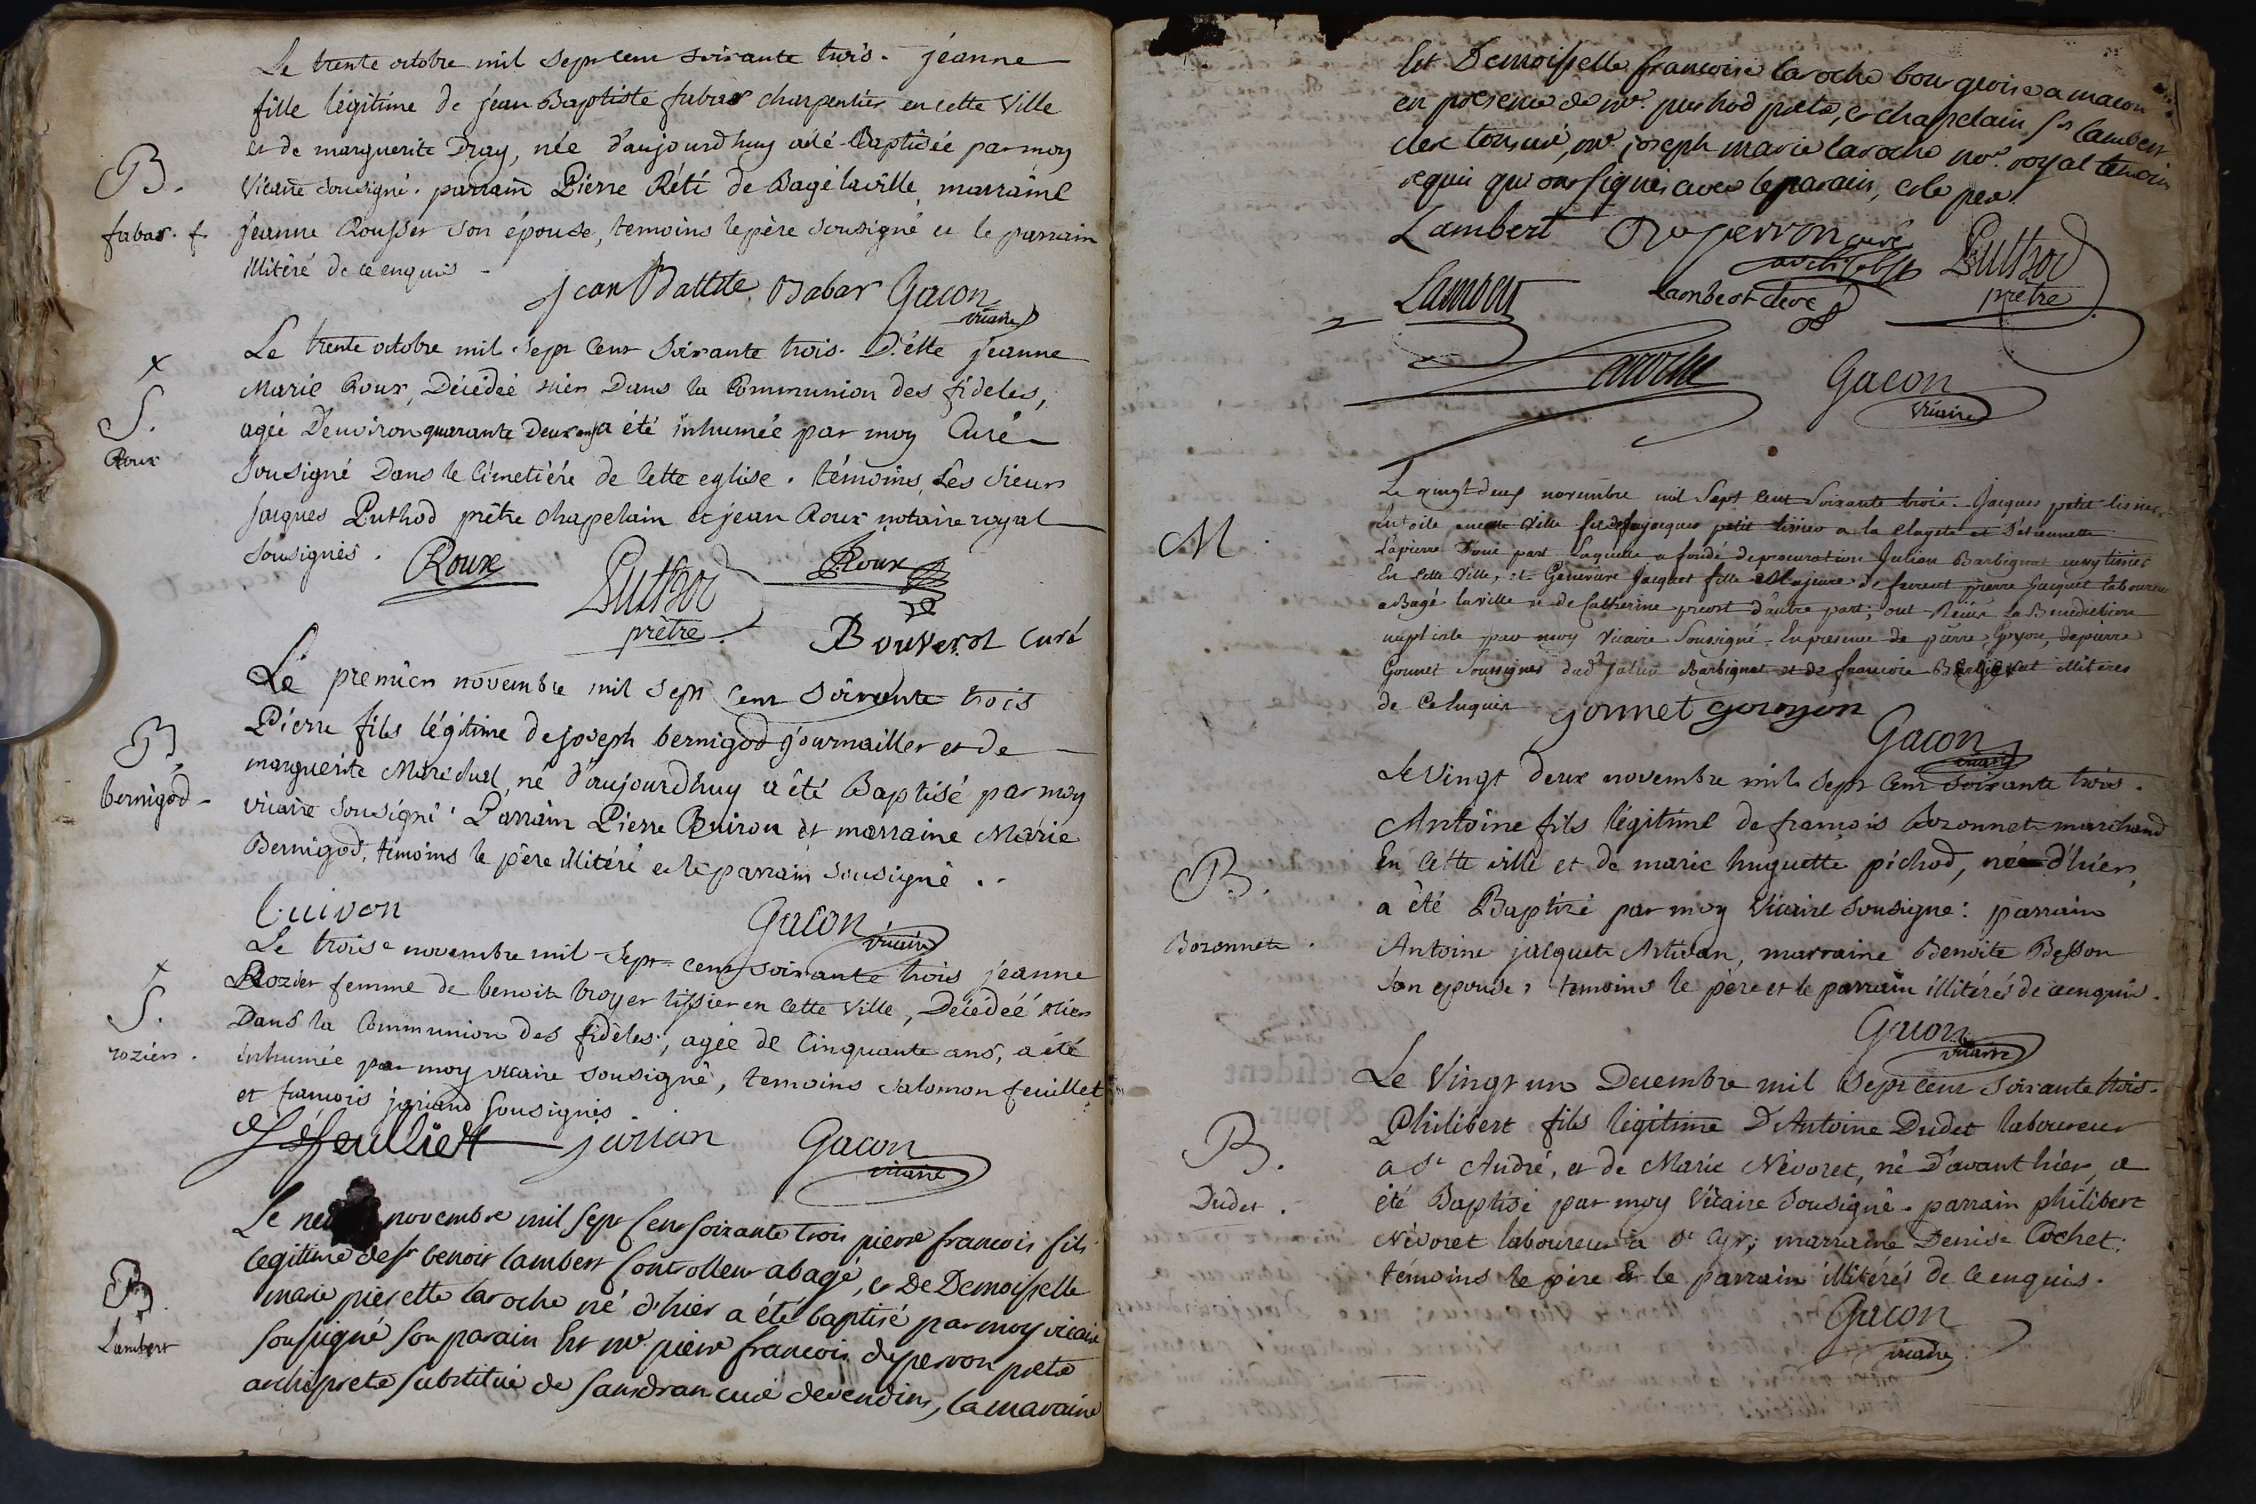 Le trente octobre mil sept cent soixante trois. jéanne
fille légitime de jean Baptiste fabas charpentier en cette Ville
et de marguerite Dray, née d'aujourd'huy a été Baptisée par moy
B.
Vicaire sousigné. parrain Pierre Rété de Bagé la ville, marraine
fabas. f.
jeanne Rousset son épouse, temoins le père sousigné et le parrain
illitéré de ce enquis
jean Battite Babas Gacon
vicaire
Le trente octobre mil sept cent soixante trois. D.elle jeanne
Marie Roux, Décédée hier Dans la Communion des fideles,
S.
agée D'environ quarante Deux ans a été inhumée par moy Curé
Roux
Sousigné Dans le Cimetiére de Cette eglise. témoins Les sieurs
Jacques Puthod prêtre chapelain et jean Roux notaire royal
sousignés.
Roux Puthod Roux
prêtre
Bouverot Curé
Le premier novembre mil sept cent soixante trois
Pierre fils légitime de joseph bernigod journailler et de
B.
marguerite Maréchal, né d'aujourdhuy a été Baptisé par moy
bernigod
vicaire sousigné. Parrain Pierre Cuiron et marraine Marie
Bernigod, témoins le père illitéré et le parrain sousigné.
Cuiron Gacon
vicaire
Le troise novembre mil sept cent soixante trois jeanne
Rozier femme de benoit broyer tissier en cette Ville, Décédéé hier
S.
Dans la Communion des fidèles, agée de Cinquante ans, a été
rozier.
inhumée par moy vicaire sousigné, temoins salomon feuillet
et francois jariand sousignés
feulliet jarian Gacon
vicaire
Le novembre mil sept cent soixante trois pierre francois fils
legitime de sr benoit lambert Controlleur a bagé, et De Demoiselle
B.
marie pierrette laroche né d'hier a été baptisé par moy vicaire
Lambert
sousigné son parain Est mr. pierre francois duperron prete
archiprete substitué de sandran curé de vendins, la maraine
Est Demoiselle francoise laroche bourgeoise a macon
en presence de mr. puthod prete, et chapelain, sr lambert
clerc tonsuré, mr. joseph marie laroche nore. royal temoins
requis qui ont signés avec le parain, et le pere
Lambert Duperron curé
Puthod
prêtre
Lambert Lambert clerc
Laroche Gacon
vicaire
Le vingt deux novembre mil Sept Cent Soixante trois. Jacques petit tissier
M.
en toile en cette Ville fils de feu jacques petit tissier a la et D'etiennette
Lapierre D'une part Laquelle a fondé de procuration Julien Barbignat aussy tissier
En cette Ville, et Genevieve Jacquet fille Majeure de feu pierre Jacquet laboureur
a Bagé la ville et de Catherine d'autre part; ont Reçus La Benediction
nuptiale par moy Vicaire Soussigné. En presence de pierre Goyon, de pierre
Gonnet Soussignés dud. Julien Barbignat et de francois illiteres
de Ce Enquis gonnet goyon
Gacon
vicaire
Le vingt deux novembre mil sept Cent soixante trois.
Antoine fils légitime de francois bozonnet marchand
B.
En Cette ville et de marie huguette pichod, né d'hier,
a été Baptizé par moy Vicaire sousigné: parrain
Bozonnet.
Antoine jacquet Artisan, marraine Benoite Besson
son epouse, temoins le père et le parrain illitérés de ce enquis.
Gacon
vicaire
Le Vingt un Decembre mil sept cent soixante trois.
Philibert fils légitime D'Antoine Dudet laboureur
B.
a St André, et de Marie Névoret, né D'avant hier, a
Dudet.
été Baptisé par moy Vicaire sousigné. parrain philibert
Névoret laboureur a St Cyr; marraine Denise Cochet;
témoins le père Et le parrain illitérés de ce enquis.
Gacon
vicaire